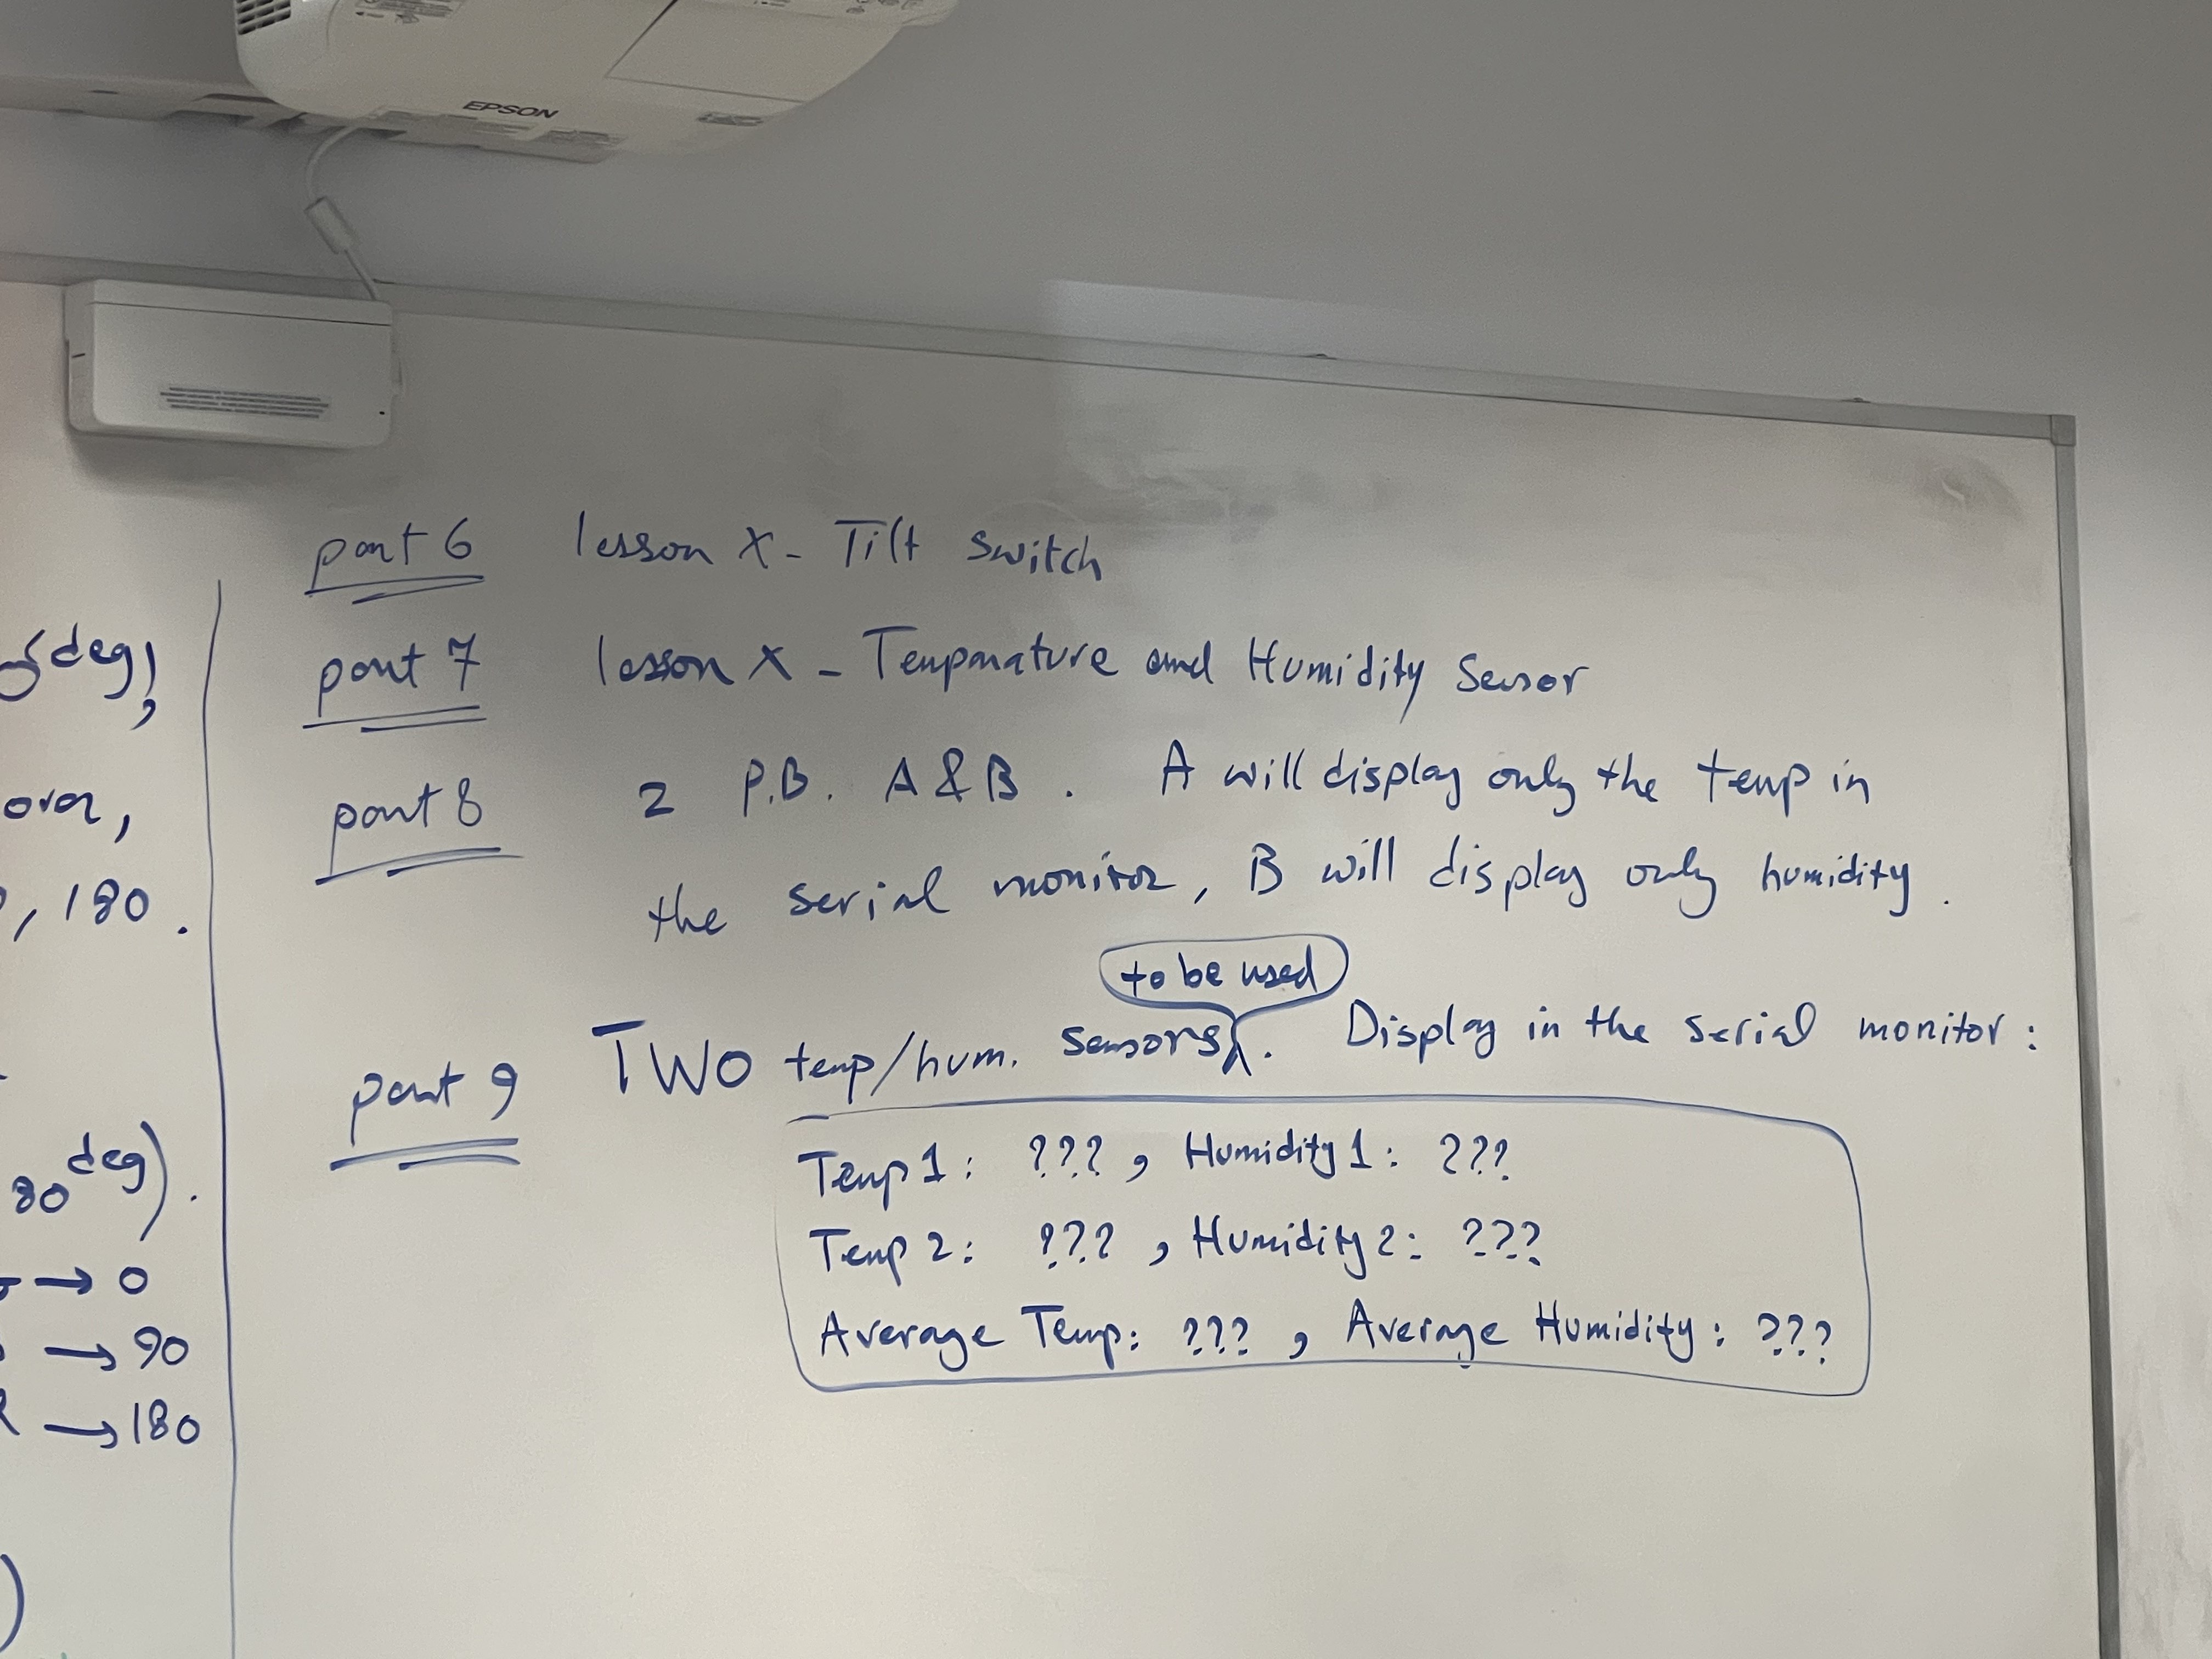 EPSON
deg)
,
over,
, 180.
80 deg).
→ 0
→ 90
→ 180
)
part 6 lesson X - Tilt switch
part 7 lesson X - Temperature and Humidity Sensor
part 8 2 P.B. A & B. A will display only the temp in
the serial monitor, B will display only humidity.
to be used
part 9 TWO temp/hum. sensors. Display in the serial monitor:
Temp 1: ???, Humidity 1: ???
Temp 2: ???, Humidity 2: ???
Average Temp: ???, Average Humidity: ???